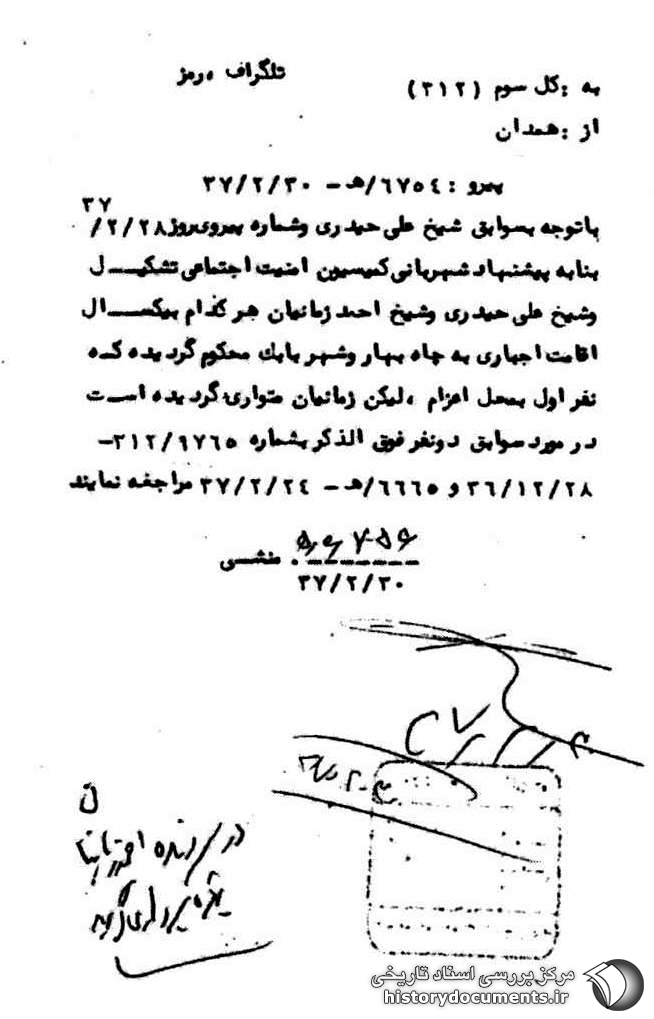 به : کل سوم (۳۱۲)
تلگراف ، رمز
از : همدان
پیرو : ۶۷۵۴/هـ - ۳۷/۲/۳۰
۳۷
باتوجه بسوابق شیخ علی حیدری وشماره پیروی روز ۲/۲۸/
بنابه پیشنهاد شهربانی کمیسیون امنیت اجتماعی تشکیـــل
وشیخ علی حیدری وشیخ احمد زمانیان هر کدام بیکســـال
اقامت اجباری به چاه بهار وشهر بابك محکوم گردیده که
نفر اول بمحل اعزام ، لیکن زمانیان متواری گردیده اسـت
در مورد سوابق دونفر فوق الذکر بشماره ۳۱۲/۹۷۶۵-
۳۶/۱۲/۲۸ و ۶۶۶۵/هـ - ۳۷/۲/۲۴ مراجعه نمایند
منشــی
۳۷/۲/۳۰
در پرونده
مرکز بررسی اسناد تاریخی
historydocuments.ir